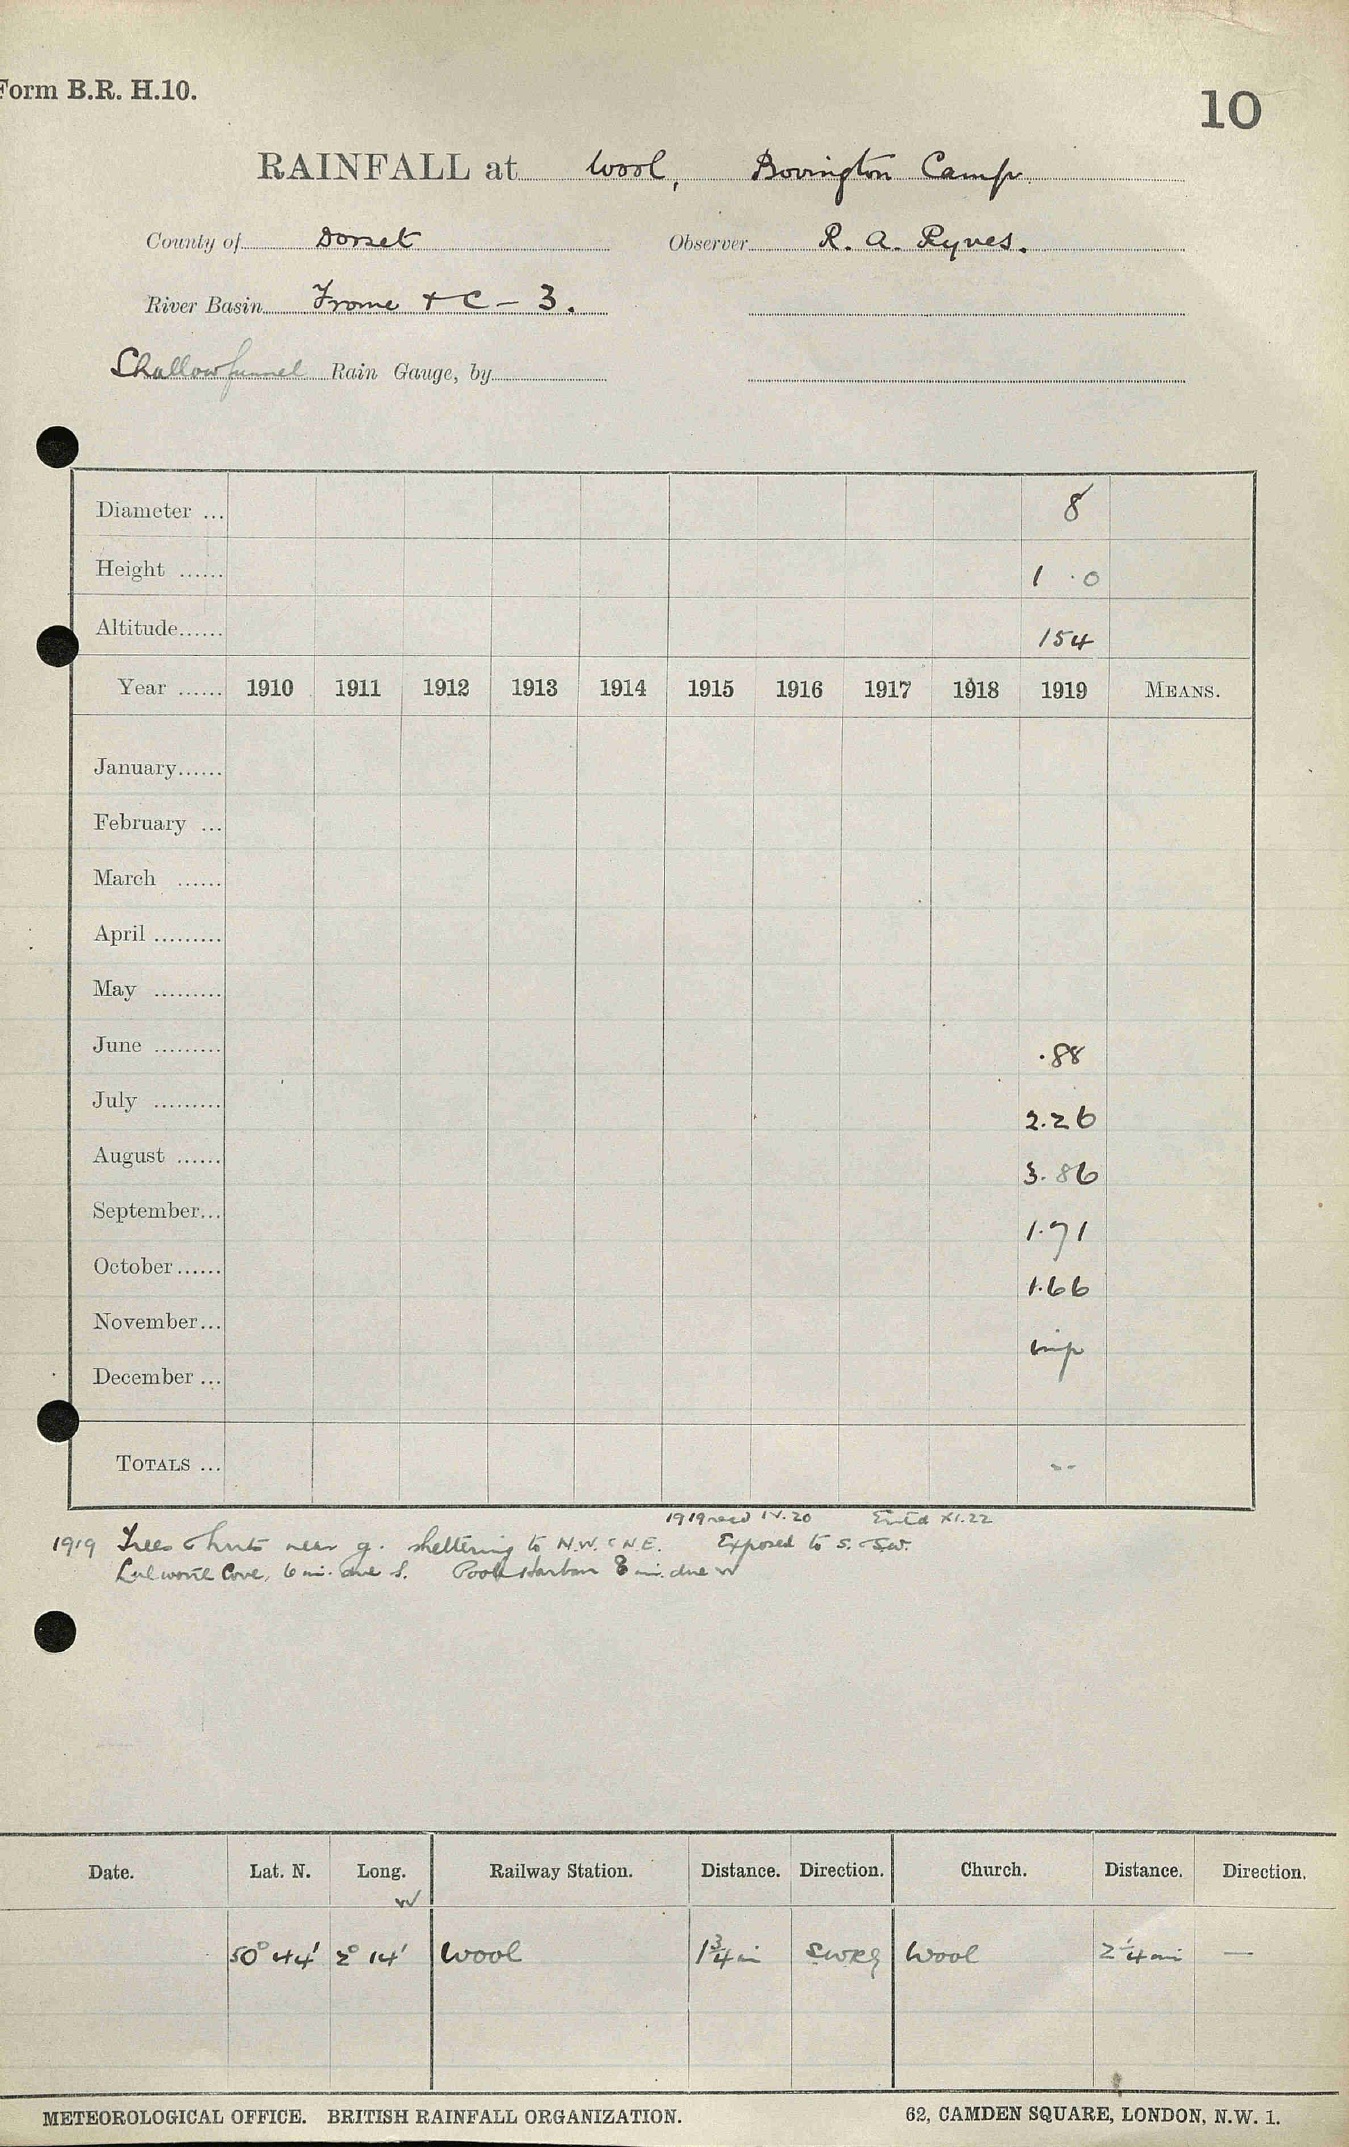 Form B.R. H.10.
10
RAINFALL at Wool, Bovington Camp.
County of Dorset Observer R. A. Ryves.
River Basin Frome + C - 3.
Shallow funnel Rain Gauge, by
Diameter ... 8
Height ...... 1 . 0
Altitude...... 154
Year ...... 1910 1911 1912 1913 1914 1915 1916 1917 1918 1919 MEANS.
January......
February ...
March ......
April .........
May .........
June ......... .88
July ......... 2.26
August ...... 3.86
September... 1.71
October...... 1.66
November... imp
December ...
TOTALS ... --
1919 recd IV.20 Entd XI.22
1919 Trees & huts near g. sheltering to N.W. & N.E. Exposed to S. & S.W.
Lulworth Cove, 6 mi. due S. Poole Harbour 8 mi. due W
Date. Lat. N. Long. Railway Station. Distance. Direction. Church. Distance. Direction.
W
50° 44' 2° 14' Wool 1 3/4 mi Wool 2 1/4 mi —
METEOROLOGICAL OFFICE. BRITISH RAINFALL ORGANIZATION. 62, CAMDEN SQUARE, LONDON, N.W. 1.